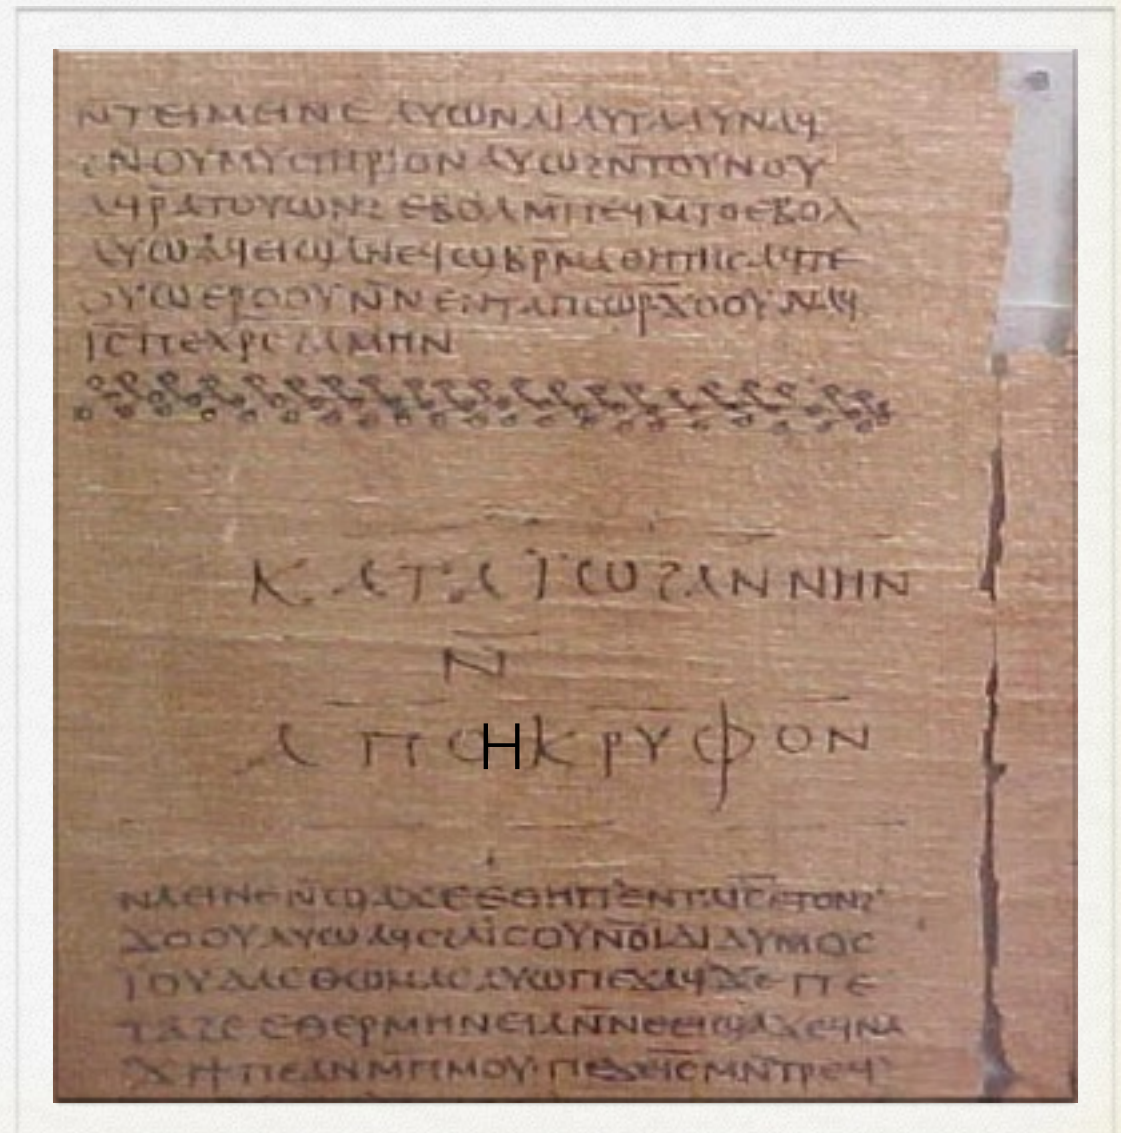 ⲛⲧⲉⲓⲙⲉⲓⲛⲉ ⲁⲩⲱ ⲛⲁⲓ ⲁⲩⲧⲁⲁⲩ ⲛⲁϥ
ϩⲛ ⲟⲩⲙⲩⲥⲧⲏⲣⲓⲟⲛ ⲁⲩⲱ ϩⲛ ⲧⲟⲩⲛⲟⲩ
ⲁϥⲣ̄ⲁⲧⲟⲩⲱⲛϩ ⲉⲃⲟⲗ ⲙ̄ⲡⲉϥⲙ̄ⲧⲟ ⲉⲃⲟⲗ
ⲁⲩⲱ ⲁϥⲉⲓ ϣⲁ ⲛⲉϥϣⲃⲣⲙⲁⲑⲏⲧⲏⲥ ⲁϥⲧⲉ
ⲟⲩⲱ ⲉⲣⲟⲟⲩ ⲛ̄ⲛⲉⲛⲧⲁⲡⲥⲱⲣ ϫⲟⲟⲩ ⲛⲁϥ
ⲓⲥ̄ ⲡⲉⲭⲣⲥ ϩⲁⲙⲏⲛ
ⲕⲁⲧⲁ ⲓ̈ⲱϩⲁⲛⲛⲏⲛ
ⲛ̄
ⲁⲡⲟⲏⲕⲣⲩⲫⲟⲛ
ⲛⲁⲉⲓ ⲛⲉ ⲛ̄ϣⲁϫⲉ ⲉⲑⲏⲡ ⲉⲛⲧⲁⲓⲥ̄ ⲉⲧⲟⲛϩ
ϫⲟⲟⲩ ⲁⲩⲱ ⲁϥⲥϩⲁⲓ̈ⲥⲟⲩ ⲛ̄ϭⲓ ⲇⲓⲇⲩⲙⲟⲥ
ⲓⲟⲩⲇⲁⲥ ⲑⲱⲙⲁⲥ ⲁⲩⲱ ⲡⲉϫⲁϥ ϫⲉ ⲡⲉ
ⲧⲁϩⲉ ⲉⲑⲉⲣⲙⲏⲛⲉⲓⲁ ⲛ̄ⲛⲉⲉⲓϣⲁϫⲉ ϥⲛⲁ
ϫⲓ ϯⲡⲉ ⲁⲛ ⲙ̄ⲡⲙⲟⲩ ⲡⲉϫⲉ ⲓⲥ̄ ⲙⲛ̄ⲧⲣⲉϥ